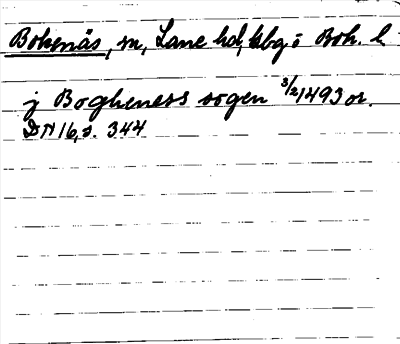 Bokenäs, sn, Lane hd, Gbg o Boh. l.
j Bogheness sogen 3/2 1493 or.
DN 16, s. 344